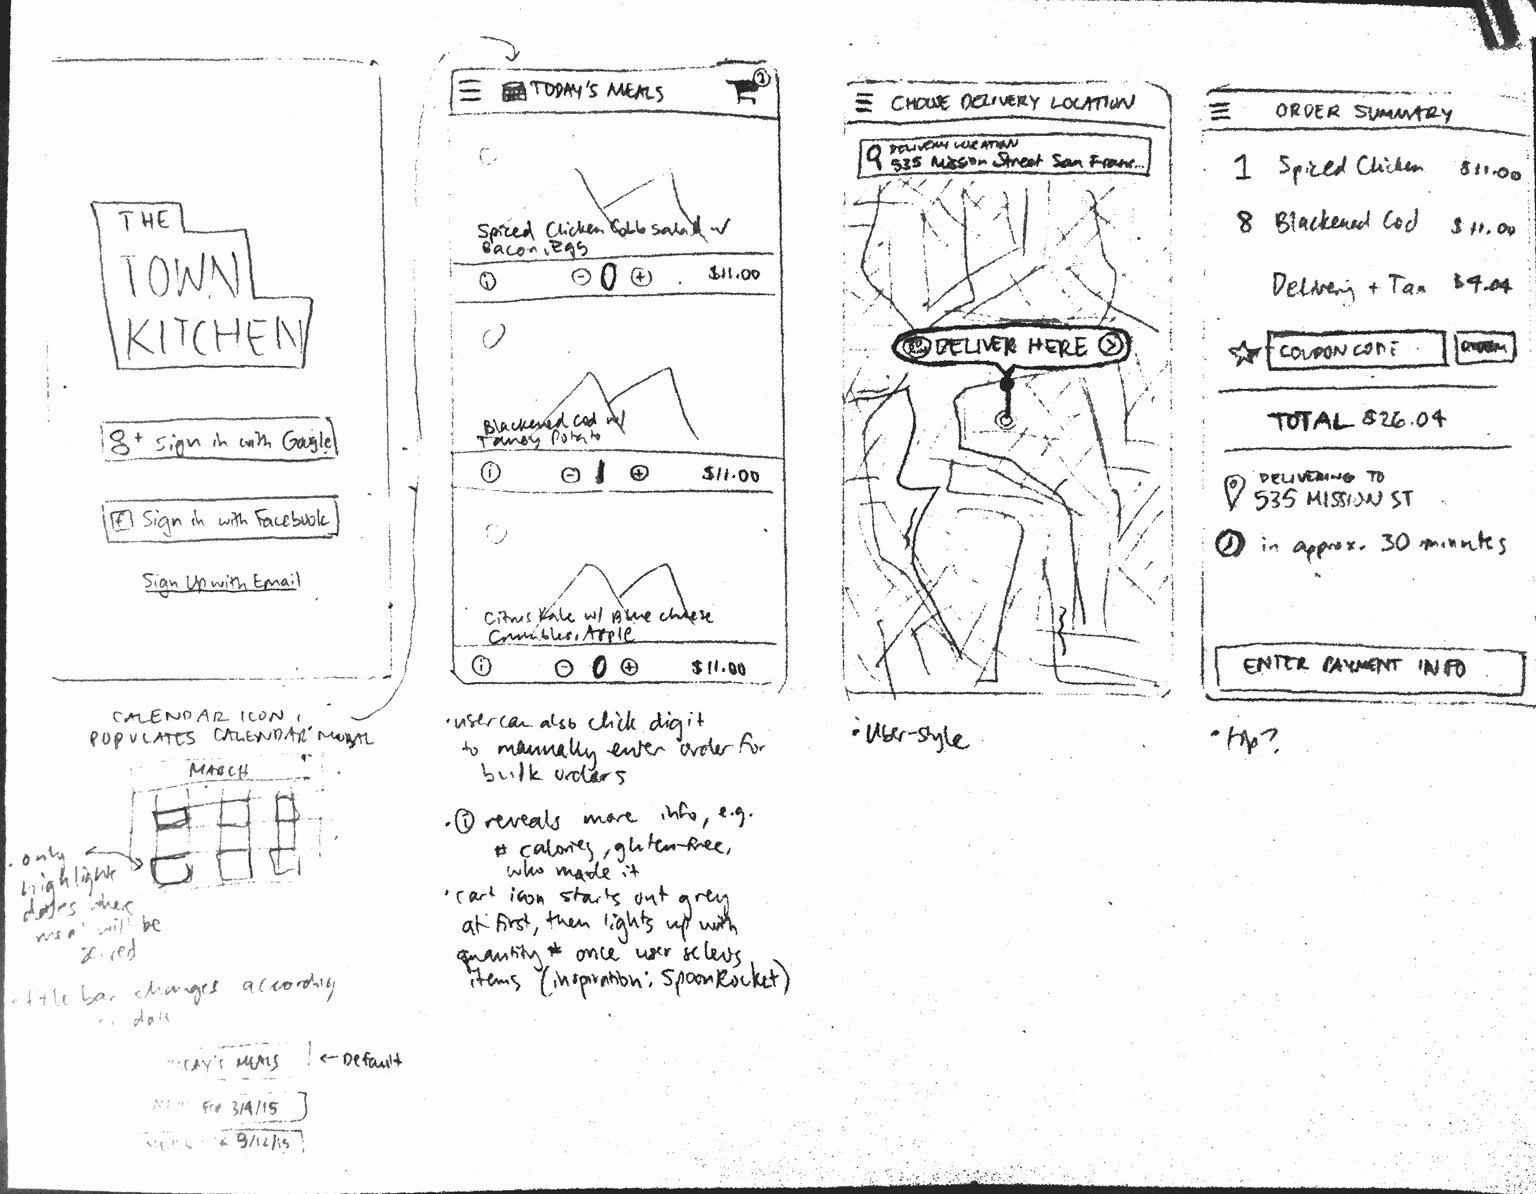 THE
TOWN
KITCHEN
g+ Sign in with Google
f Sign in with Facebook
Sign Up with Email
CALENDAR ICON,
POPULATES CALENDAR MODAL
MARCH
• only
highlight
dates where
will be
• title bar changes according
MEALS
← Default
For 3/9/15
9/12/15
TODAY'S MEALS
Spiced Chicken Cobb salad w/
Bacon, Egg
i - 0 + $11.00
Blackened Cod w/
Tangy Potato
i - 1 + $11.00
Citrus Kale w/ Blue cheese
Crumbles, Apple
i - 0 + $11.00
• user can also click digit
to manually enter order for
bulk orders
• i reveals more info, e.g.
# calories, gluten-free,
who made it
• cart icon starts out grey
at first, then lights up with
quantity # once user selects
items (inspiration: SpoonRocket)
CHOOSE DELIVERY LOCATION
DELIVERY LOCATION
535 Mission Street San Franc...
DELIVER HERE
• Uber-style
ORDER SUMMARY
1 Spiced Chicken $11.00
8 Blackened Cod $11.00
Delivery + Tax $4.04
COUPON CODE
TOTAL $26.04
DELIVERING TO
535 MISSION ST
in approx. 30 minutes
ENTER PAYMENT INFO